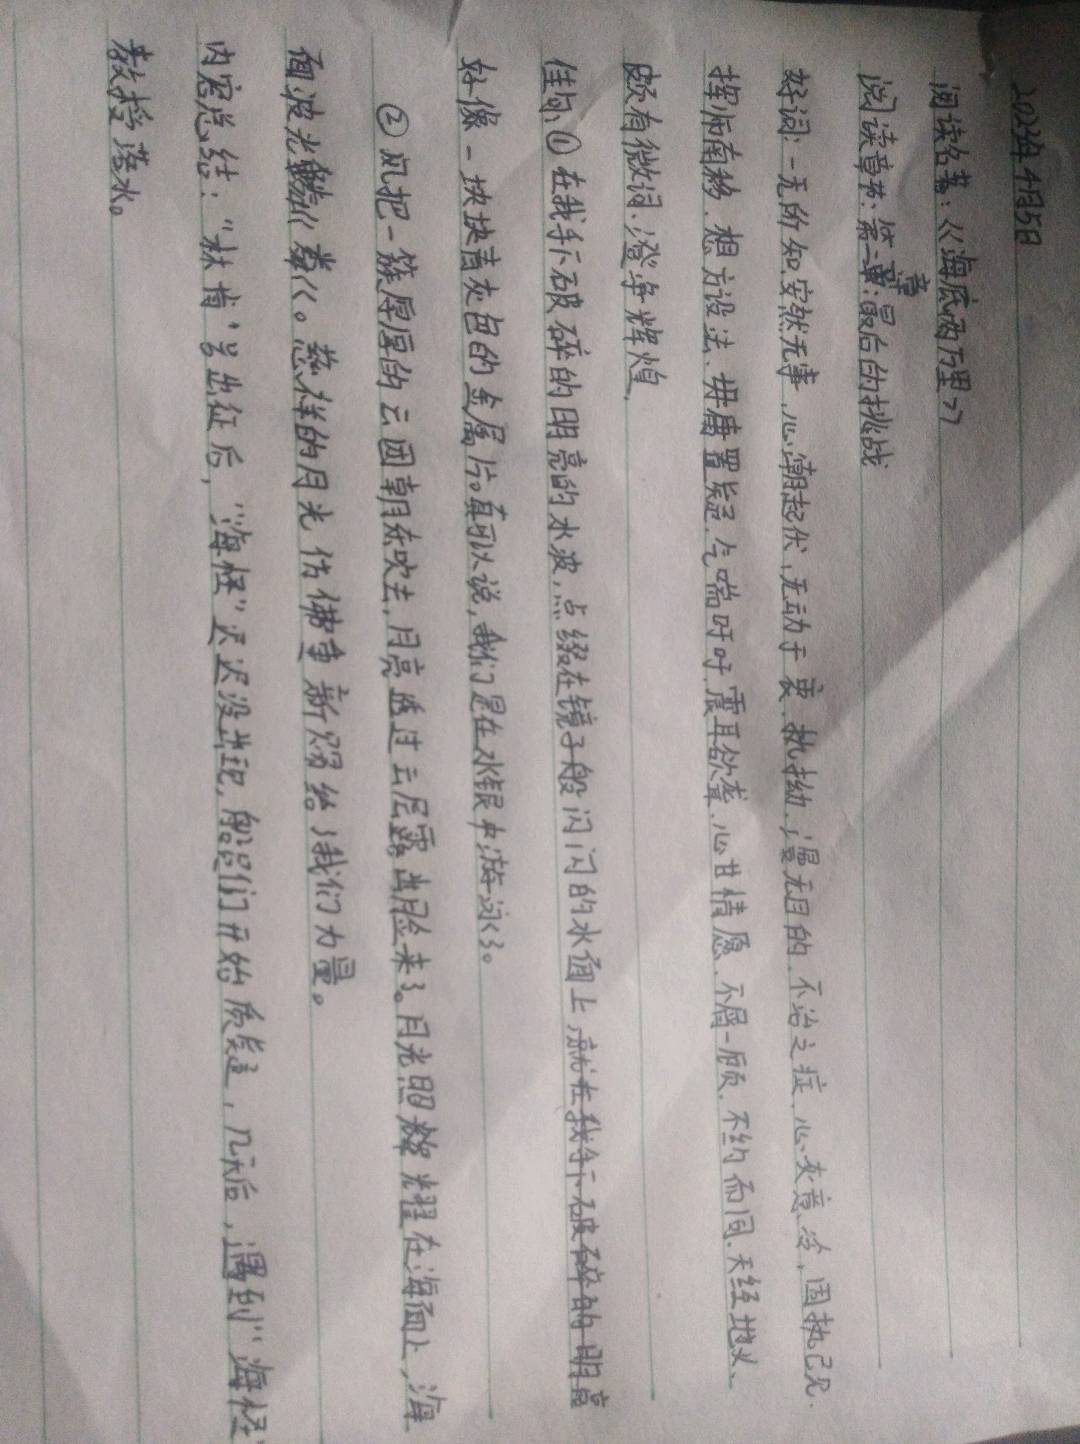 2023年4月5日
阅读名著：《海底两万里》
阅读章节：第二章：最后的挑战
好词：一无所知、安然无事、心潮起伏、无动于衷、执拗、漫无目的、不治之症、心灰意冷、固执己见、
挥师南移、想方设法、毋庸置疑、气喘吁吁、震耳欲聋、心甘情愿、不屑一顾、不约而同、天经地义、
颇有微词、澄净辉煌、
佳句、①在我手下破碎的明亮的水波，点缀在镜子般闪闪的水面上，就在我手下破碎的明亮
好像一块块青灰色的金属片。真可以说，我们是在水银中游泳了。
②风把一簇厚厚的云团朝东吹去，月亮透过云层露出脸来了。月光照耀在海面上，海
面波光粼粼。慈祥的月光仿佛重新赐给了我们力量。
内容总结：“林肯”号出征后，“海怪”迟迟没出现，船员们开始质疑，几天后，遇到“海怪”
教授落水。